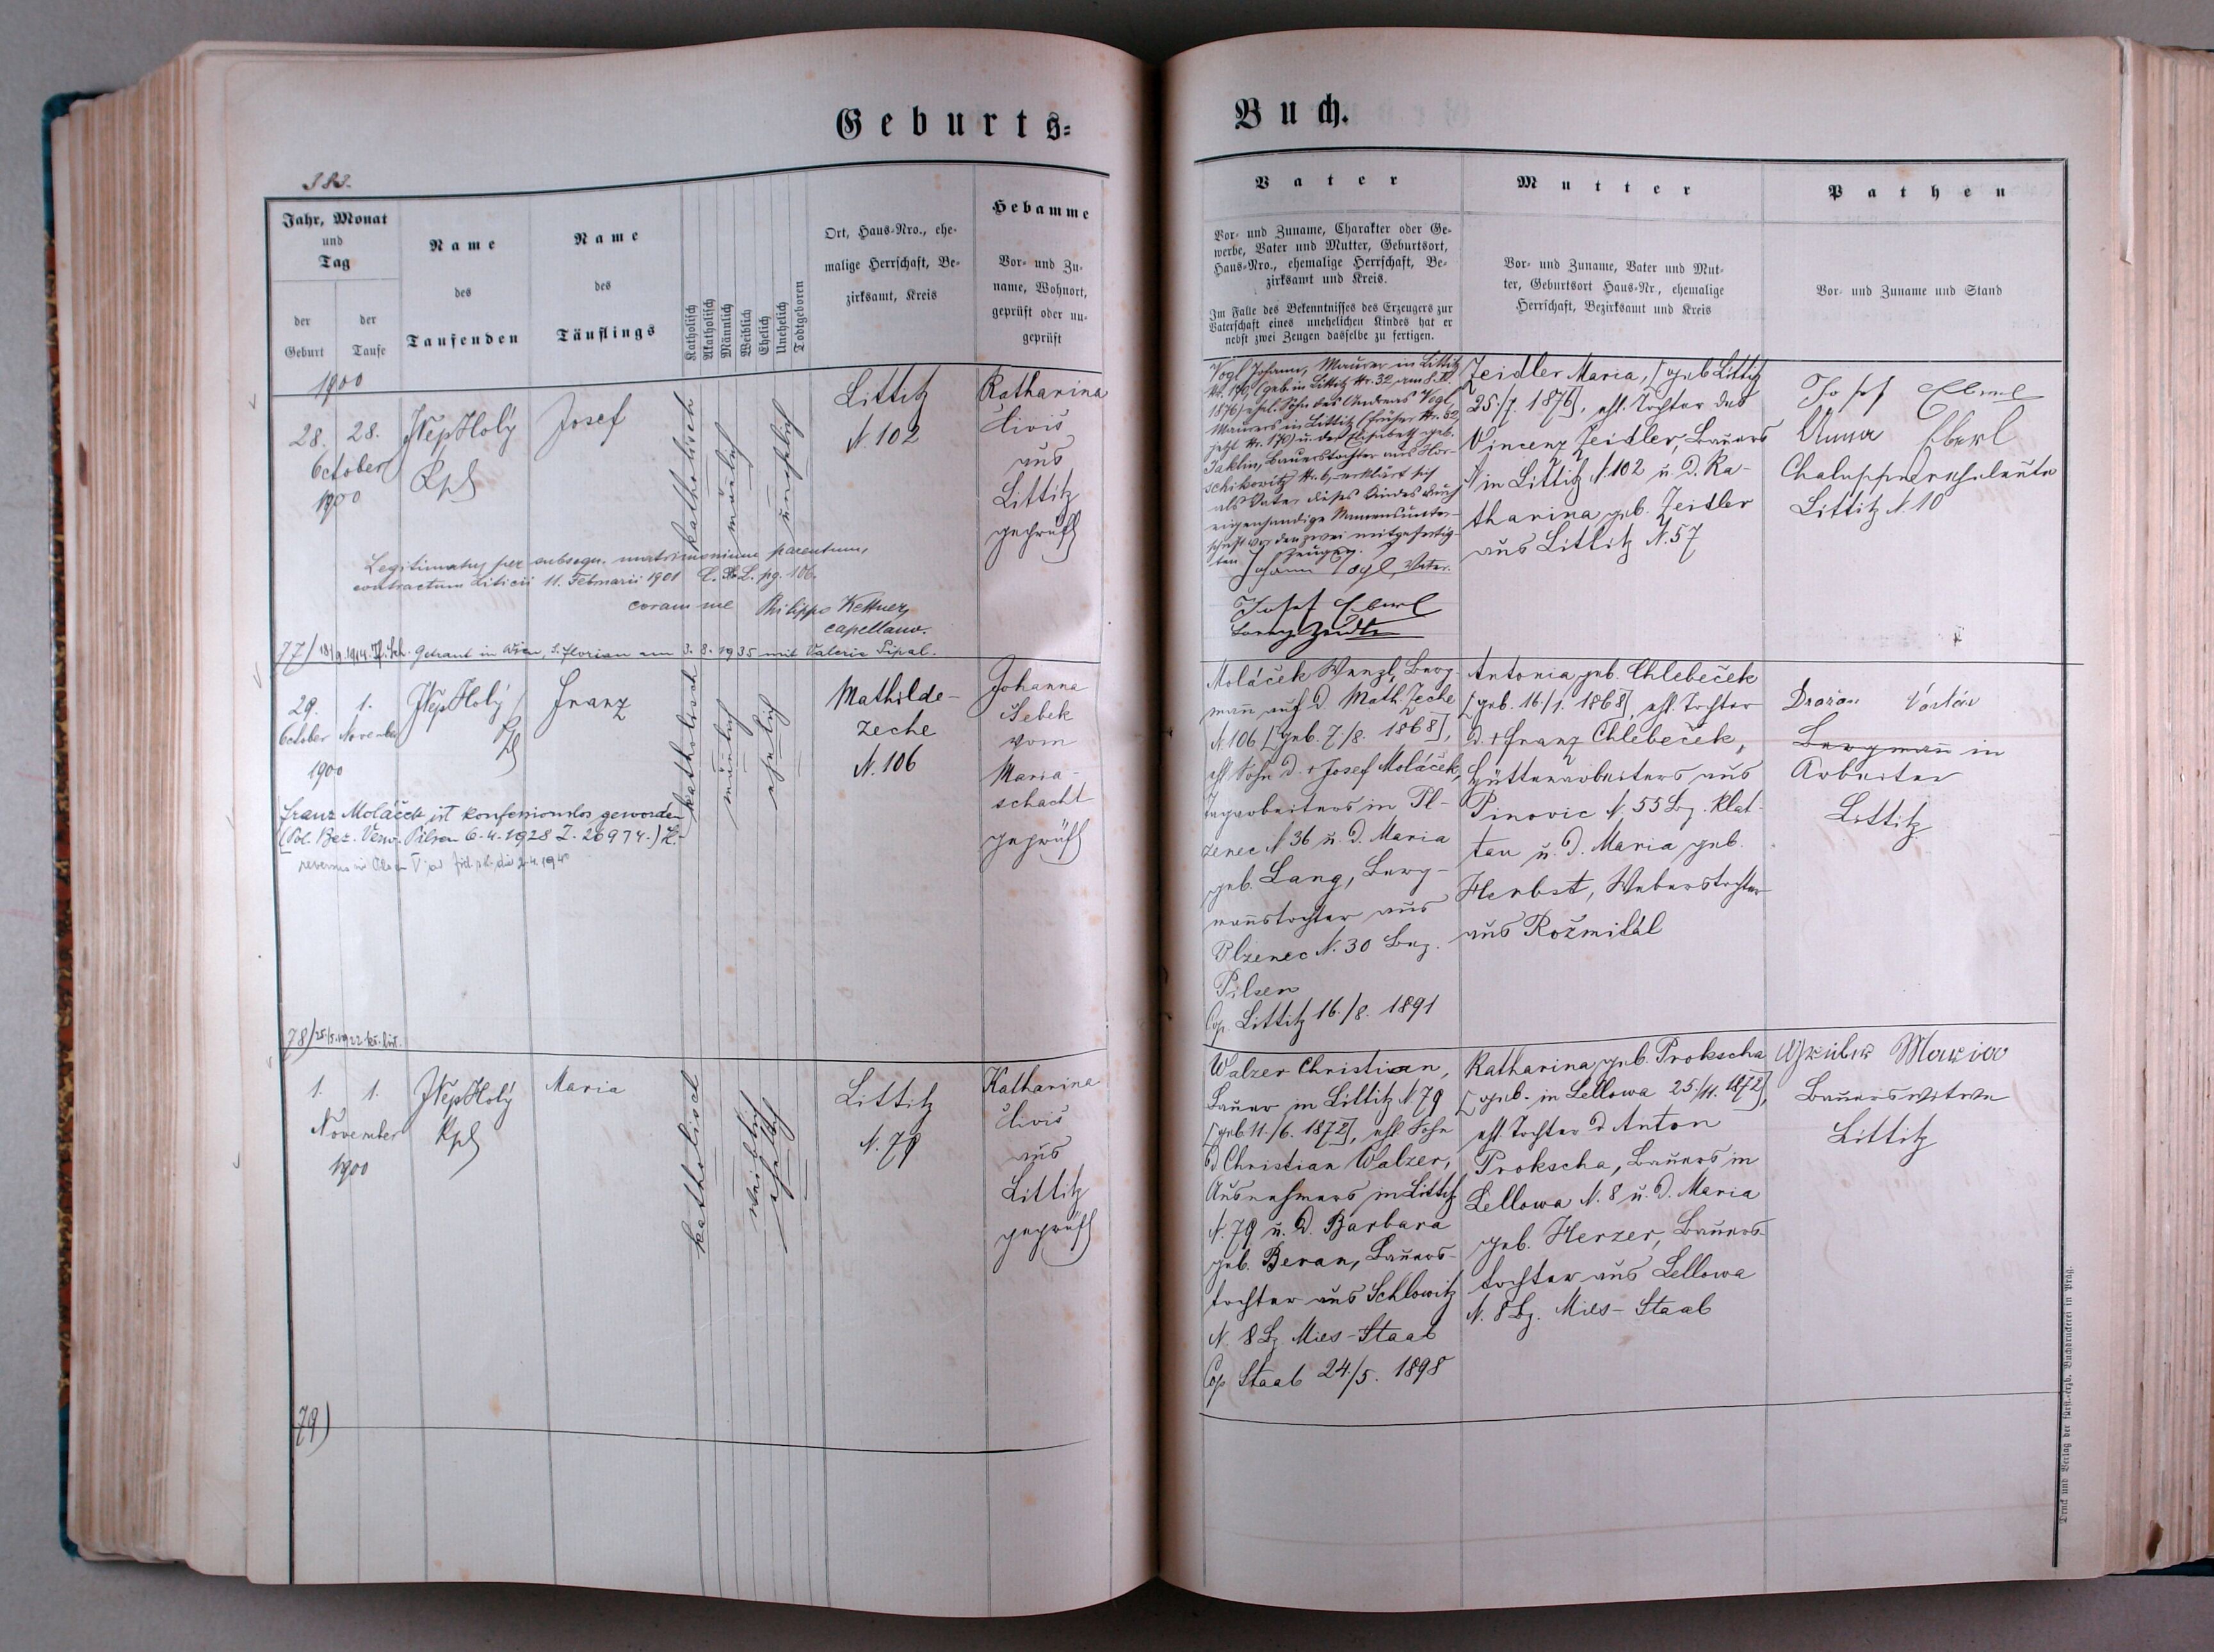 Geburts=
383.
Jahr, Monat
und
Tag
der
Geburt
der
Taufe
Name
des
Taufenden
Name
des
Täuflings
Katholisch
Akatholisch
Männlich
Weiblich
Ehelich
Unehelich
Todtgeboren
Ort, Haus-Nro., ehe-
malige Herrschaft, Be-
zirksamt, Kreis
Hebamme
Vor- und Zu-
name, Wohnort,
geprüft oder un-
geprüft
1900
28.
28.
October
1900
NepHolý
Kpl
Josef
katholisch
männlich
unehelich
Littitz
N. 102
Katharina
Hivis
aus
Littitz
geprüft
Legitimatus per subsequ. matrimonium parentum,
contractum Liticii 11. Februarii 1901 C. L. pg. 106.
coram me Philippo Kettner,
capellano.
77) 18/9.1914. Getraut in Wien, S. Florian am 3. 8. 1935 mit Valerie Sipal.
29.
1.
October November
1900
NepHolý
Kpl
Franz
katholisch
männlich
ehelich
Mathilde-
zeche
N. 106
Johanna
Šebek
vom
Maria-
schacht
geprüft
Franz Moláček ist konfessionslos geworden
(Pol. Bez. Verw. Pilsen 6.4.1928 Z. 26974.)
78) 25/5.1922
1.
1.
November
1900
NepHolý
Kpl
Maria
katholisch
weiblich
ehelich
Littitz
N. 79
Katharina
Hivis
aus
Littitz
geprüft
79)
Buch.
Vater
Vor- und Zuname, Charakter oder Ge-
werbe, Vater und Mutter, Geburtsort,
Haus-Nro., ehemalige Herrschaft, Be-
zirksamt und Kreis.
Im Falle des Bekenntnisses des Erzeugers zur
Vaterschaft eines unehelichen Kindes hat er
nebst zwei Zeugen dasselbe zu fertigen.
Mutter
Vor- und Zuname, Vater und Mut-
ter, Geburtsort Haus-Nr., ehemalige
Herrschaft, Bezirksamt und Kreis
Pathen
Vor- und Zuname und Stand
Vogl Johann, Maurer in Littitz
Nr. 170, (geb. in Littitz Nr. 32 am
1876) ehel. Sohn des Andreas Vogl,
Maurers in Littitz (früher Nr. 62
jetzt Nr. 170) u. der Elisabeth geb.
Jaklin, Bauerstochter aus Hor-
schikowitz Nr. 6, erklärt sich
als Vater dieses Kindes durch
eigenhändige Namensunter-
schrift vor den zwei mitgefertig-
ten Zeugen.
Johann Vogl, Vater.
Josef Eberl
Zeidler
Zeidler Maria, [geb. Littitz
25./7. 1876], ehl. Tochter des
Vincenz Zeidler, Bauers
in Littitz N. 102 u. d. Ka-
tharina geb. Zeidler
aus Littitz N. 57
Josef Eberl
Anna Eberl
Chaluppnerseheleute
Littitz N. 10
Moláček Wenzl, Berg-
mann auf d. Math. Zeche
N. 106 [geb. 7./8. 1868],
ehl. Sohn d. + Josef Moláček,
Tagarbeiters in Pl-
zenec N. 36 u. d. Maria
geb. Lang, Berg-
mannstochter aus
Plzenec N. 30 Bez.
Pilsen
Cop. Littitz 16./8. 1891
Antonia geb. Chlebeček
[geb. 16./1. 1868], ehl. Tochter
d. + Franz Chlebeček,
Hüttenarbeiters aus
Pinovic N. 55 Bz. Klat-
tau u. d. Maria geb.
Herbst, Weberstochter
aus Rožmitál
Bergmann in
Arbeiter
Littitz
Walzer Christian,
Bauer in Littitz N. 79
[geb. 11./6. 1872], ehl. Sohn
d. Christian Walzer,
Ausnehmers in Littitz
N. 79 u. d. Barbara
geb. Beran, Bauers-
tochter aus Schlowitz
N. 8 Bz. Mies-Staab
Cop. Staab 24./5. 1898
Katharina geb. Prokscha
[geb. in Lellowa 25./11. 1872],
ehl. Tochter d. Anton
Prokscha, Bauers in
Lellowa N. 8 u. d. Maria
geb. Herzer, Bauers-
tochter aus Lellowa
N. 8 Bz. Mies-Staab
Gruber Maria
Bauerswitwe
Littitz
Druck und Verlag der fürst.-erzb. Buchdruckerei in Prag.